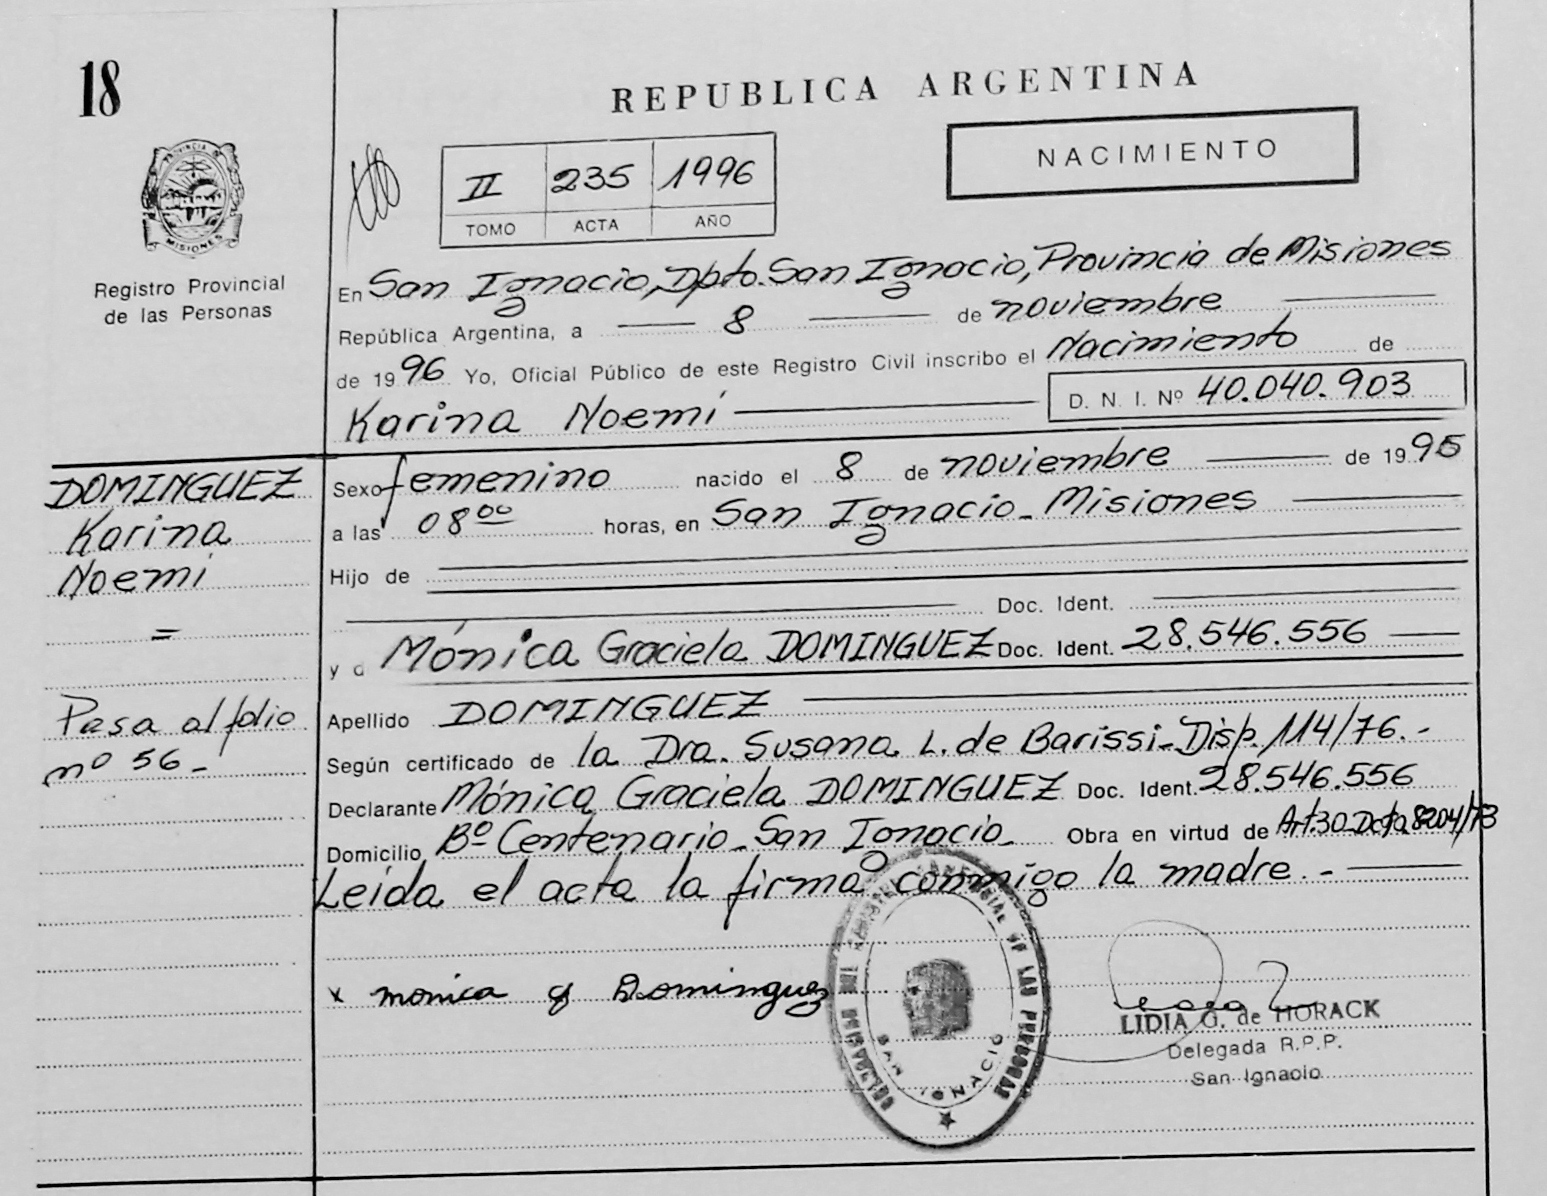 18
REPUBLICA ARGENTINA
NACIMIENTO
II 235 1996
TOMO ACTA AÑO
PROVINCIA DE
MISIONES
Registro Provincial
de las Personas
En San Ignacio, Dpto. San Ignacio, Provincia de Misiones
República Argentina, a 8 de noviembre
de 1996 Yo, Oficial Público de este Registro Civil inscribo el Nacimiento de
Karina Noemí D. N. I. Nº 40.040.903
DOMINGUEZ
Karina
Noemí
=
Pasa al folio
nº 56 -
Sexo femenino nacido el 8 de noviembre de 1995
a las 08 00 horas, en San Ignacio - Misiones
Hijo de
Doc. Ident.
y d Mónica Graciela DOMINGUEZ Doc. Ident. 28.546.556
Apellido DOMINGUEZ
Según certificado de la Dra. Susana L. de Barissi - Disp. 114/76. -
Declarante Mónica Graciela DOMINGUEZ Doc. Ident. 28.546.556
Domicilio Bº Centenario - San Ignacio - Obra en virtud de Art. 30 Dcto 8204/73
Leída el acta la firma conmigo la madre. -
x monica g Dominguez
DE LAS PERSONAS
SAN IGNACIO
LIDIA G. de HORACK
Delegada R.P.P.
San Ignacio